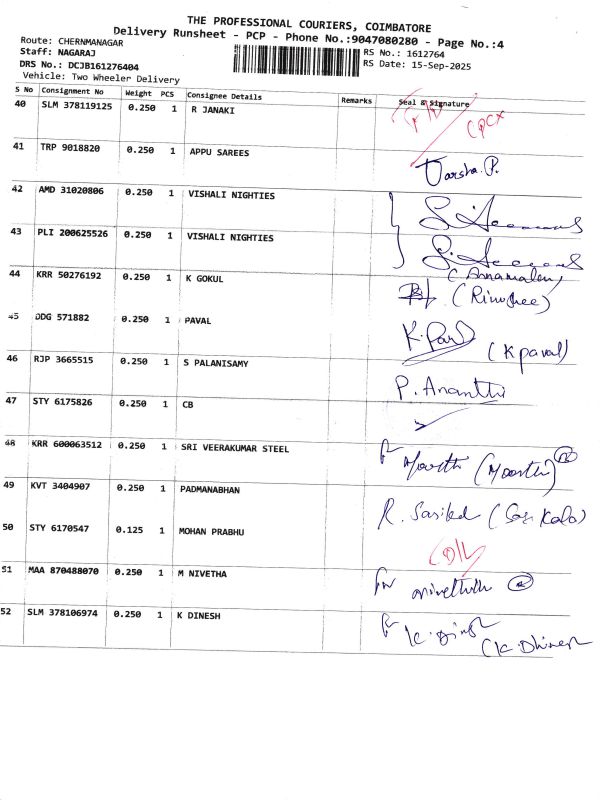 THE PROFESSIONAL COURIERS, COIMBATORE
Delivery Runsheet - PCP - Phone No.:9047080280 - Page No.:4
Route: CHERNMANAGAR
RS No.: 1612764
Staff: NAGARAJ
RS Date: 15-Sep-2025
DRS No.: DCJB161276404
Vehicle: Two Wheeler Delivery
S No Consignment No Weight PCS Consignee Details Remarks Seal & Signature
40 SLM 378119125 0.250 1 R JANAKI
41 TRP 9018820 0.250 1 APPU SAREES Varsha.P.
42 AMD 31020806 0.250 1 VISHALI NIGHTIES
43 PLI 200625526 0.250 1 VISHALI NIGHTIES
(Annamalai)
44 KRR 50276192 0.250 1 K GOKUL
45 DDG 571882 0.250 1 PAVAL (K paval)
46 RJP 3665515 0.250 1 S PALANISAMY P. Ananthi
47 STY 6175826 0.250 1 CB
48 KRR 600063512 0.250 1 SRI VEERAKUMAR STEEL
49 KVT 3404907 0.250 1 PADMANABHAN
50 STY 6170547 0.125 1 MOHAN PRABHU
51 MAA 870488070 0.250 1 M NIVETHA
52 SLM 378106974 0.250 1 K DINESH
(K. Dhinesh